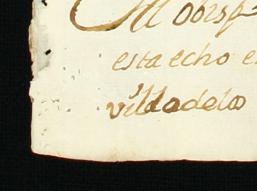 el obisp
esta echo e
villadelo